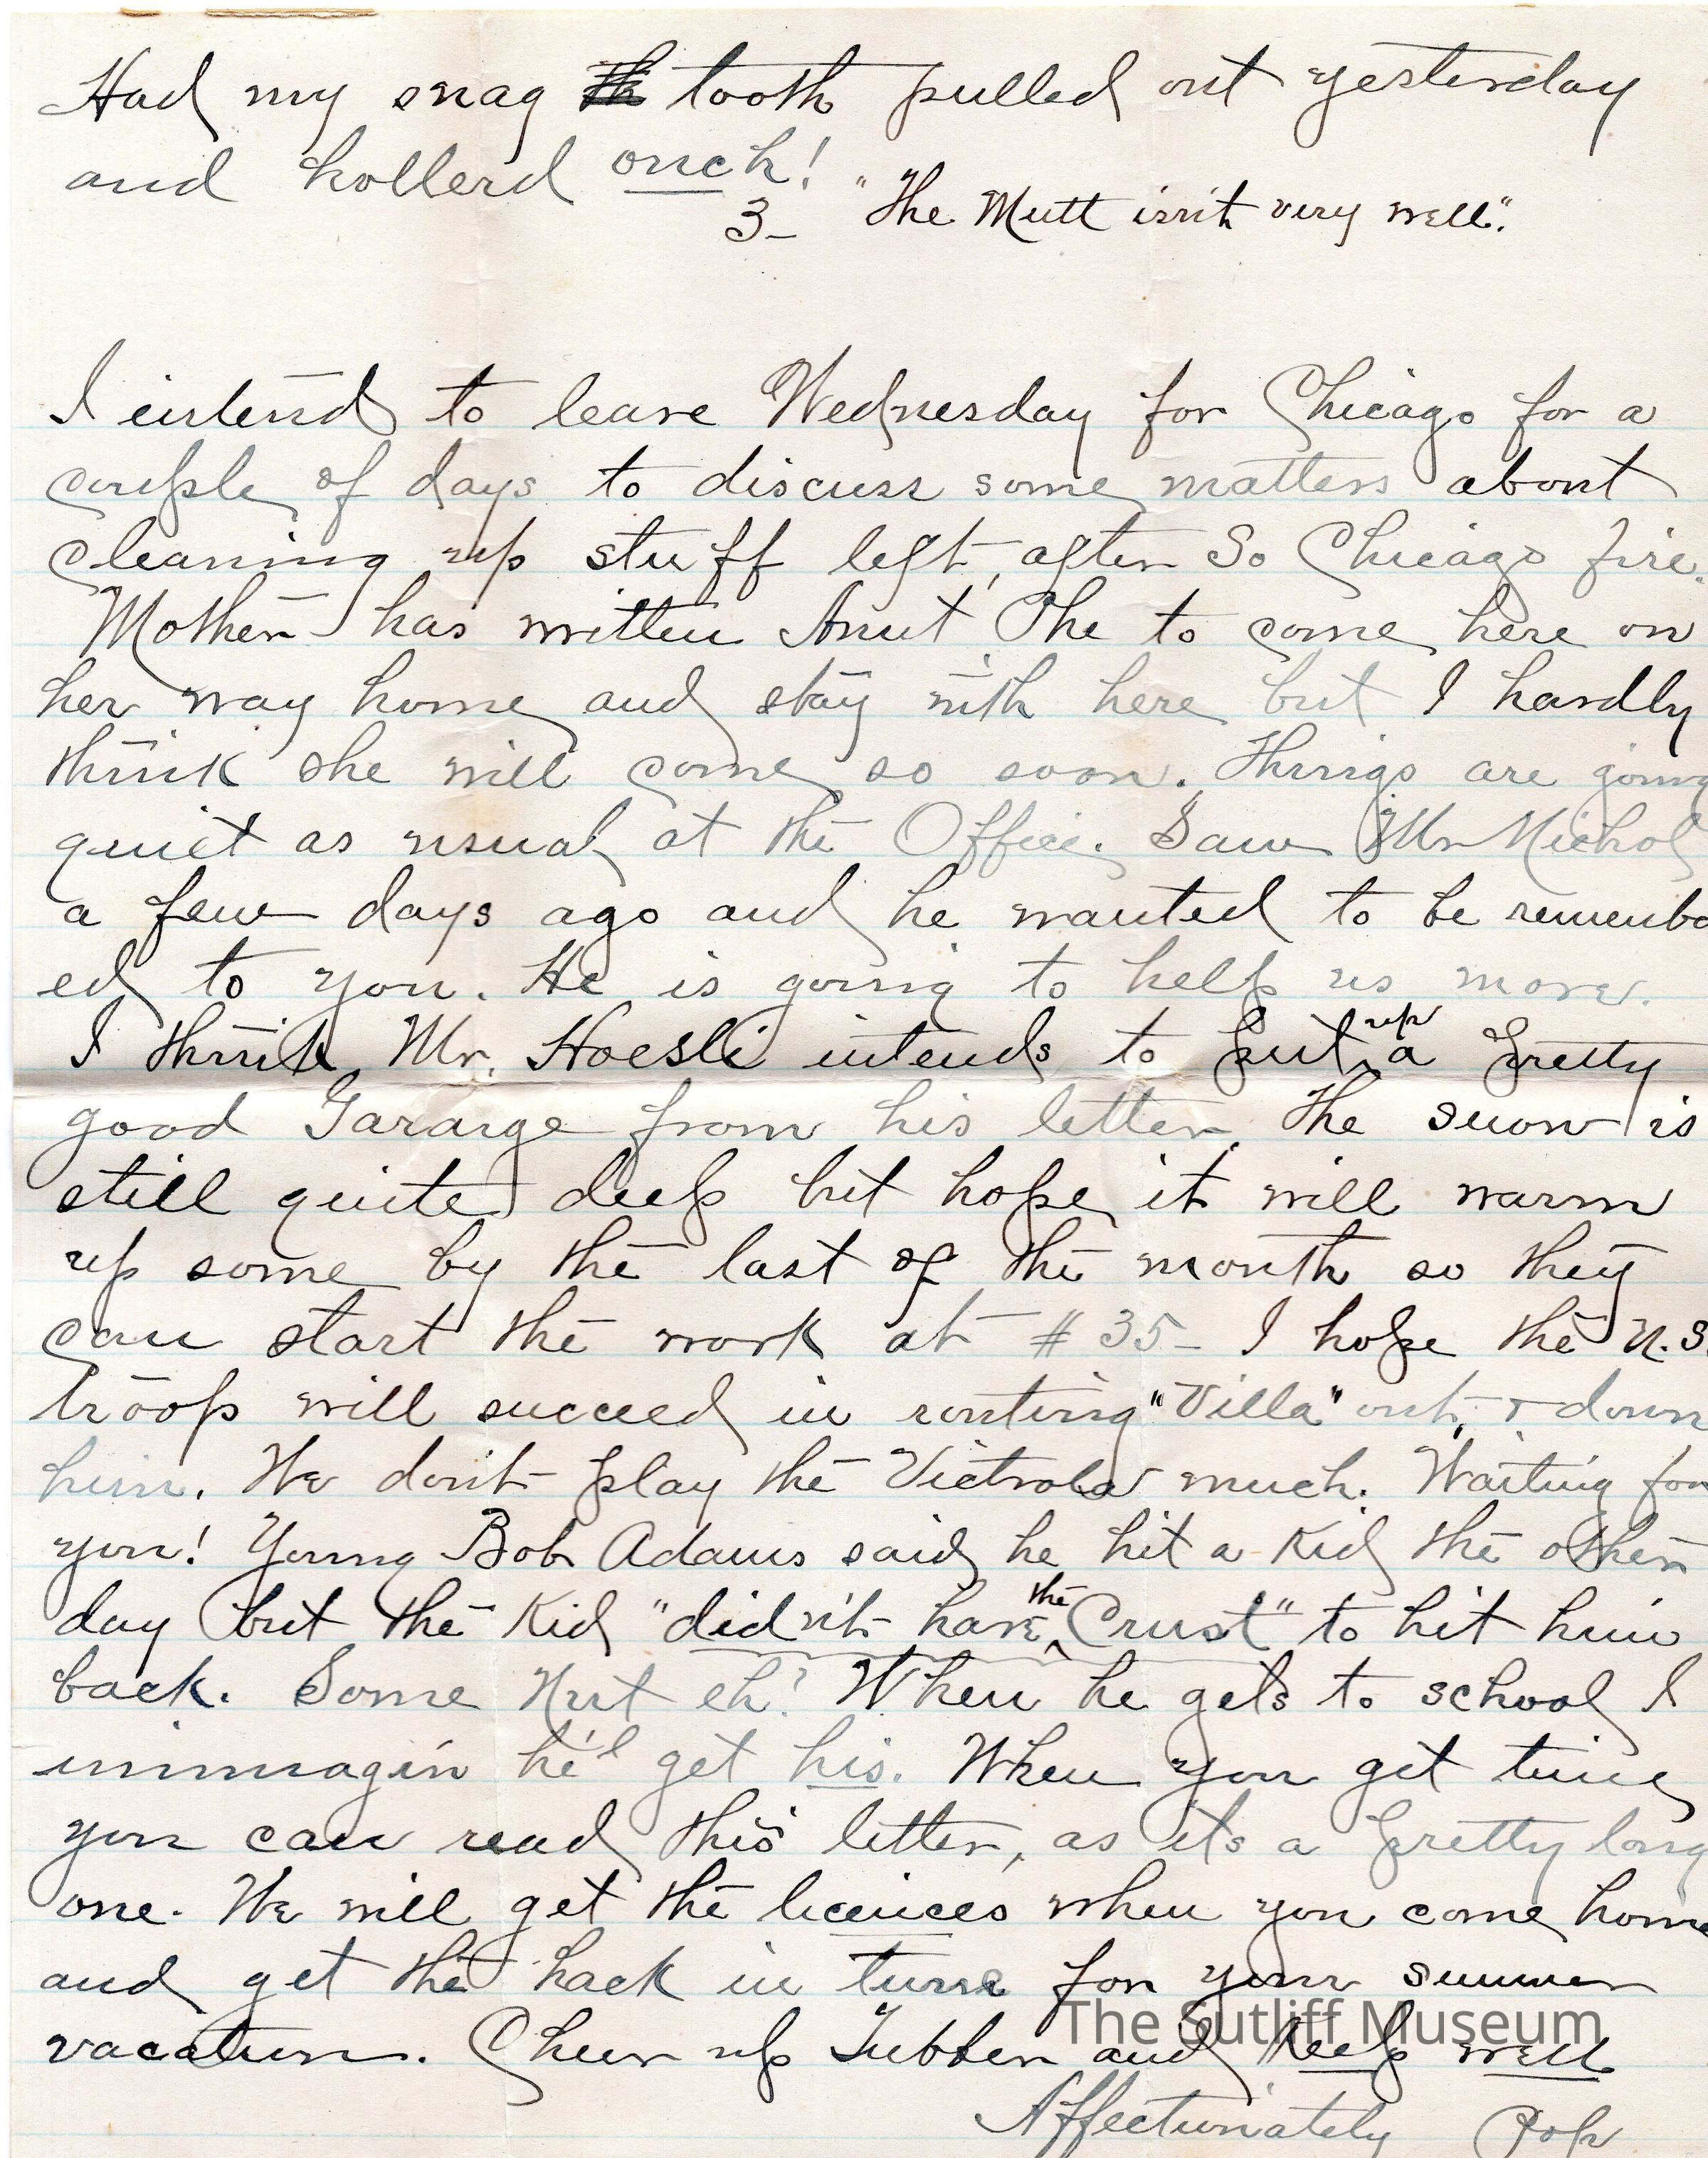 Had my snag tooth pulled out yesterday
and hollerd ouch!
3- "The Mutt isn't very well".
I intend to leave Wednesday for Chicago for a
couple of days to discuss some matters about
cleaning up stuff left, after So Chicago fire.
Mother has written Aunt Phe to come here on
her way home and stay with here but I hardly
think she will come so soon. Things are going
quiet as usual at the Office. Saw Mr Nichol
a few days ago and he wanted to be rememb
ed to you. He is going to help us more.
I think Mr. Hoesli intends to put up a pretty
good Gararge from his letter. The snow is
still quite deep but hope it will warm
up some by the last of the month so they
can start the work at #35- I hope the U.S.
troops will succeed in routing "Villa" out, & down
him. We don't play the Victrola much. Waiting for
you! Young Bob Adams said he hit a Kid the other
day but the Kid "didn't have the Crust" to hit him
back. Some Nut eh! When he gets to school I
immagin he'l get his. When you get time
you can read this letter, as its a pretty long
one. We will get the licences when you come home
and get the hack in tune for your summer
vacation. Cheer up Tubber and keep well
The Sutliff Museum
Affectionately Pop